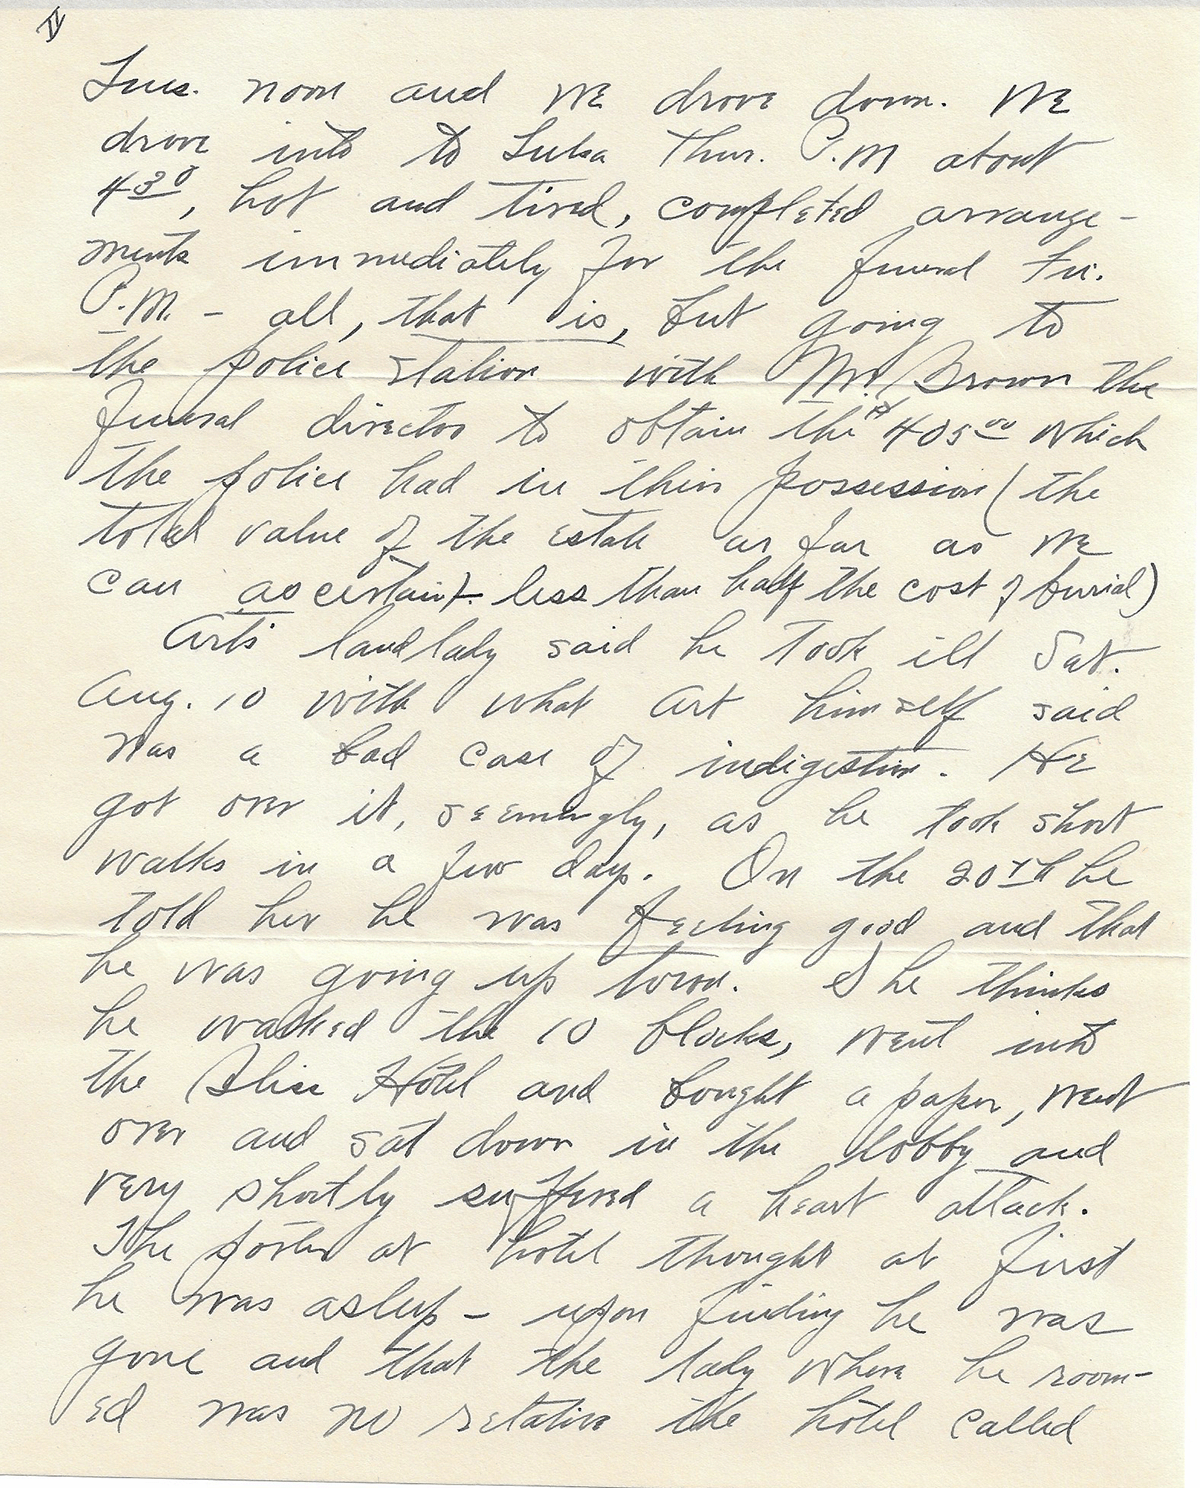 IV
Tues. noon and we drove down. We
drove into to Tulsa Thur. P.M about
4 30, hot and tired, completed arrange-
ments immediately for the funeral Fri.
P.M. - all, that is, but going to
the police station with Mr. Brown the
funeral director to obtain the $405 00 which
the police had in their possession (the
total value of the estate as far as we
can ascertain) - less than half the cost of burial)
Art's landlady said he took ill Sat.
Aug. 10 with what Art himself said
was a bad case of indigestion. He
got over it, seemingly, as he took short
walks in a few days. On the 20th he
told her he was feeling good and that
he was going up town. She thinks
he walked the 10 blocks, went into
the Hotel and bought a paper, went
over and sat down in the lobby and
very shortly suffered a heart attack.
The porter at hotel thought at first
he was asleep - upon finding he was
gone and that the lady where he room-
ed was no relative the hotel called